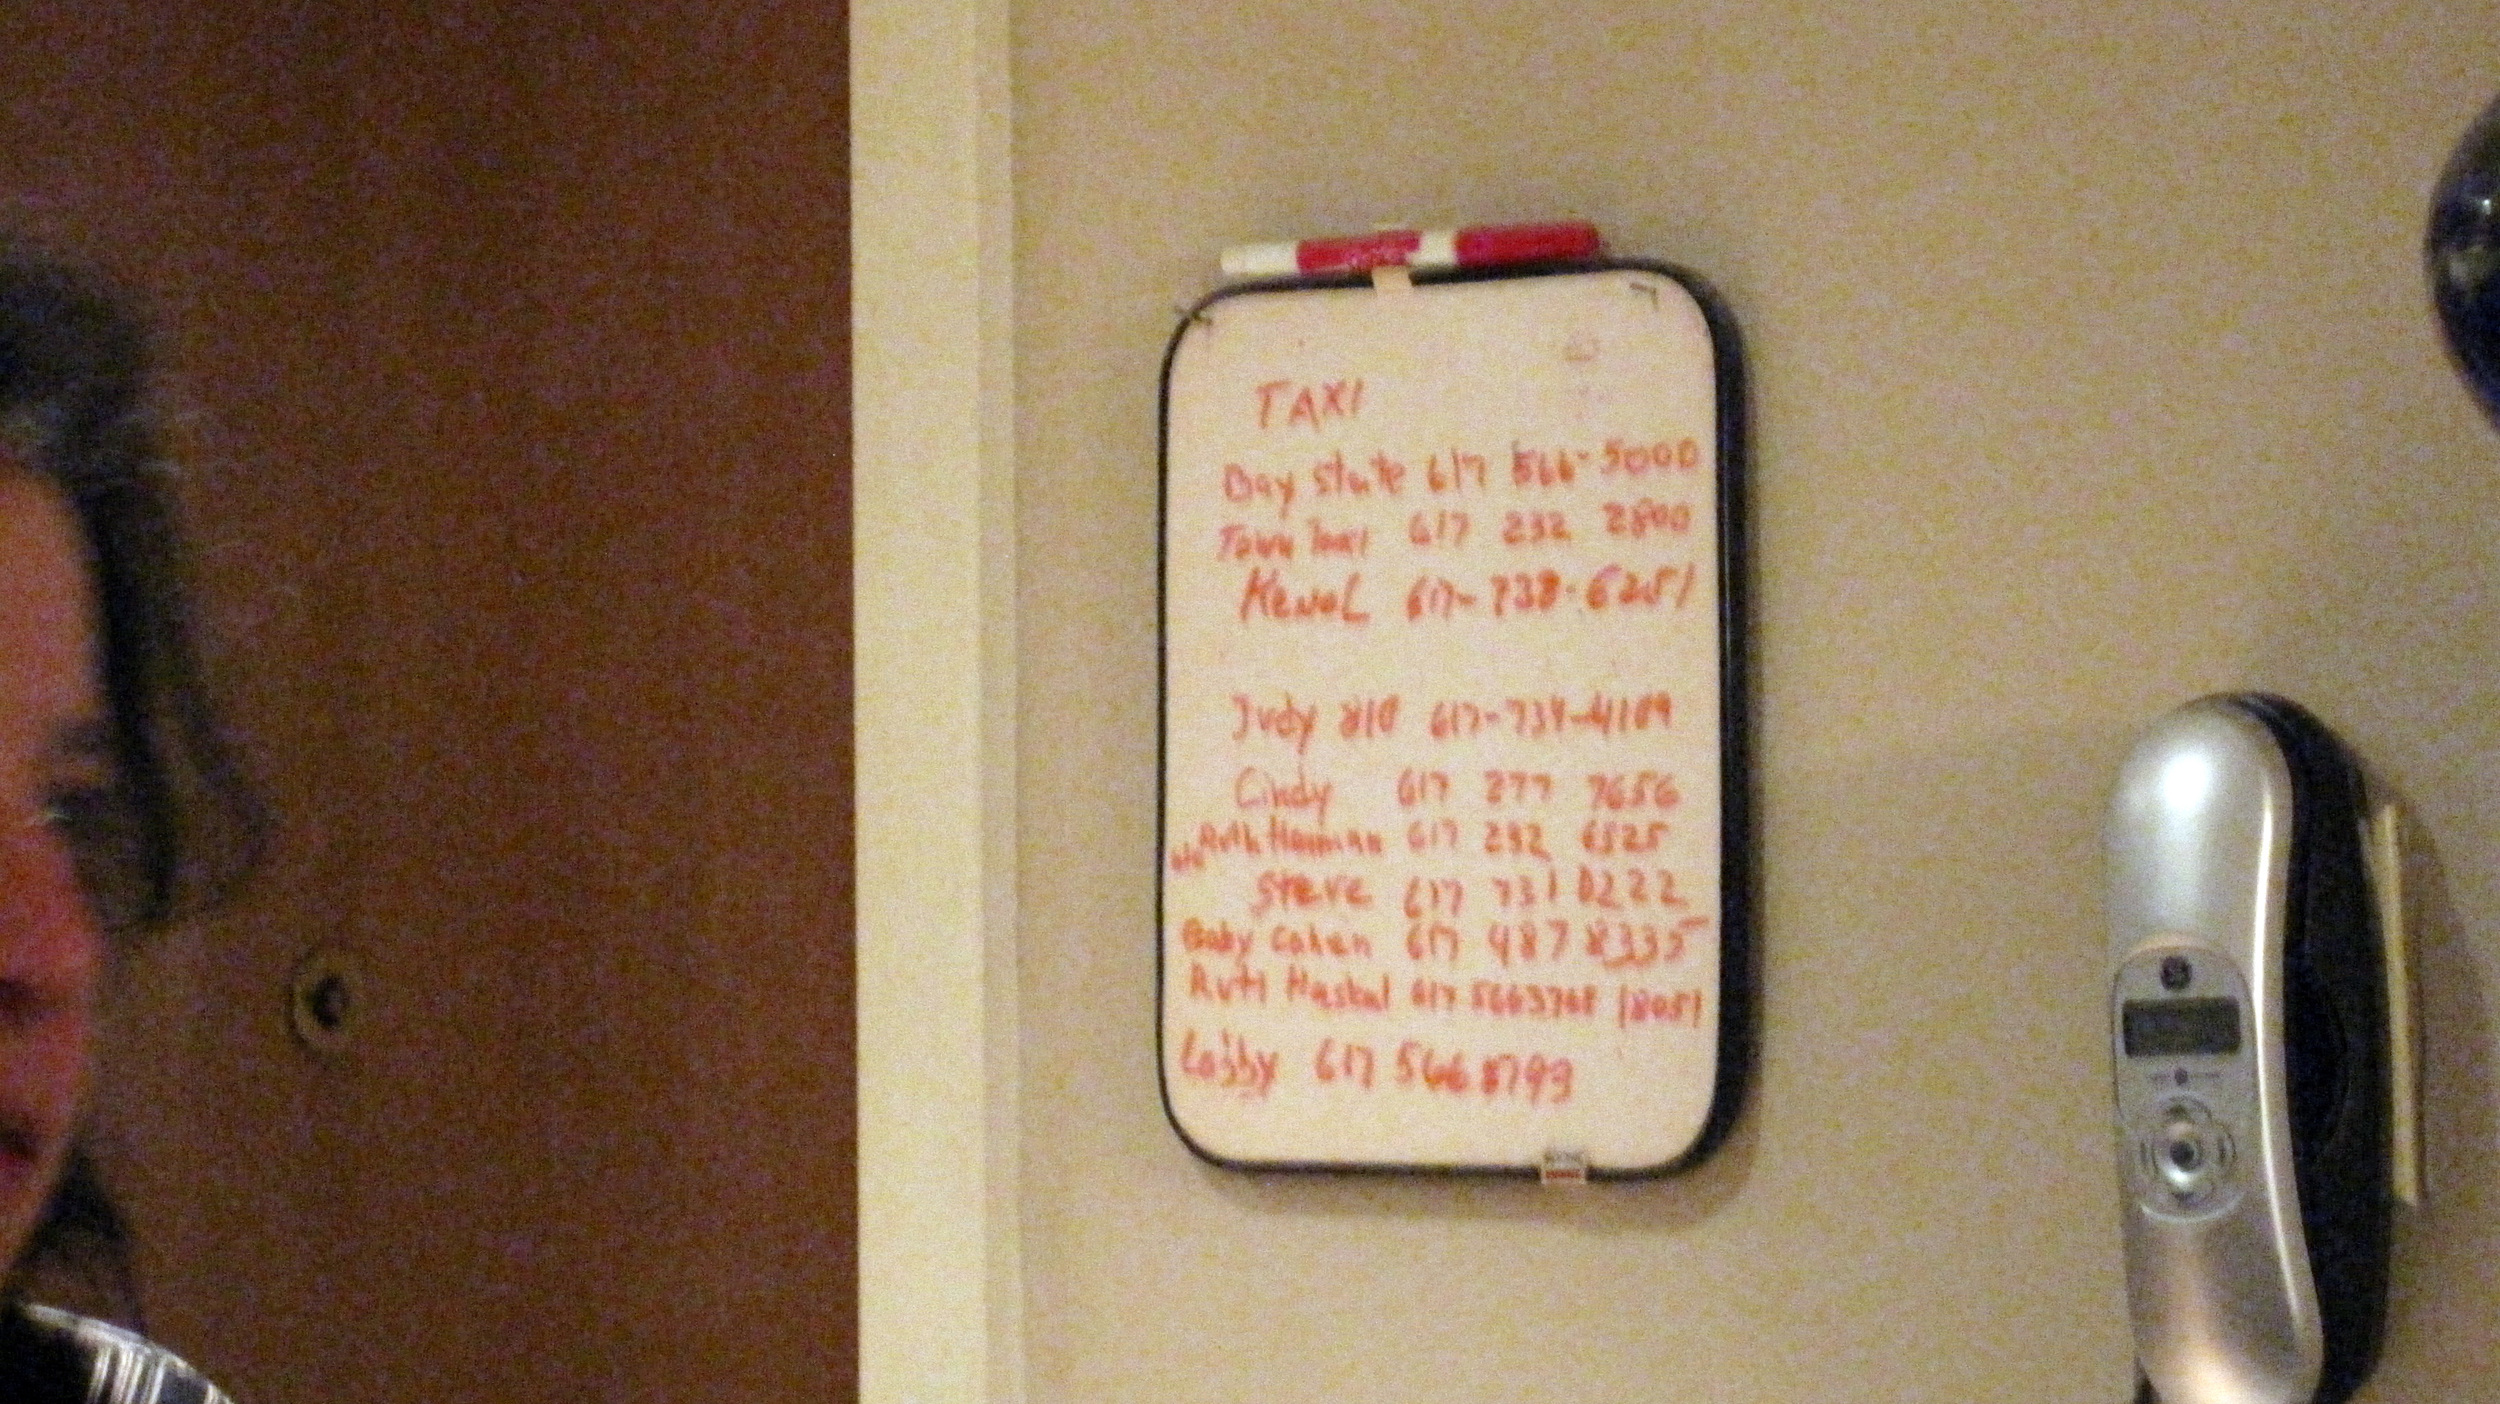 TAXI
Bay State 617 566-5000
Town Taxi 617 232 2800
KenoL 617-738-6251
Judy 810 617-734-4189
Cindy 617 277 7656
Ruth 617 232 6525
Steve 617 731 0222
Baby Cohen 617 487 8335
Ruth Haskal 617 5663768
Lobby 617 566 8793